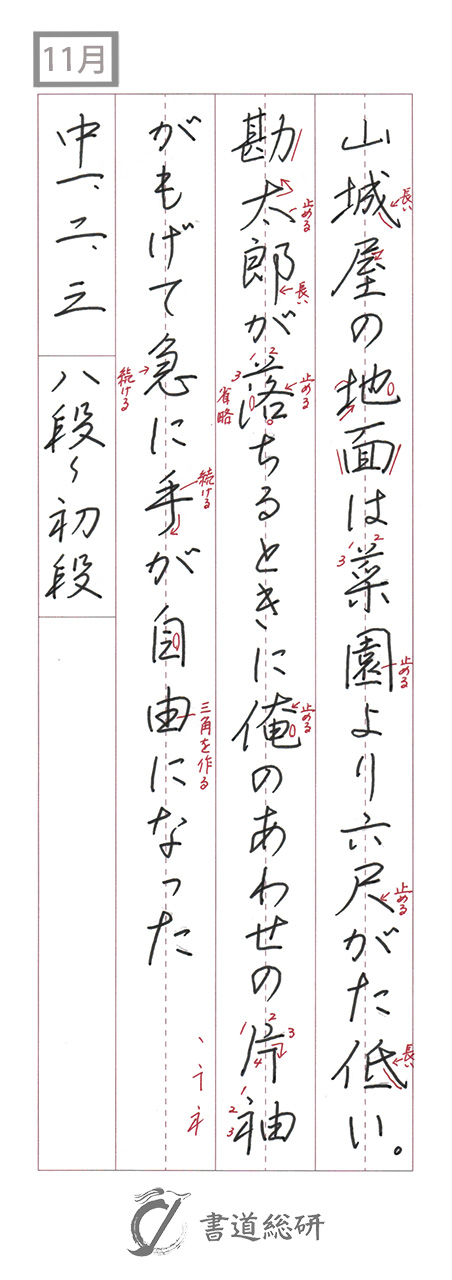 11月
山城屋の地面は菜園より六尺がた低い。
長い
止める
止める
長い
1
2
3
勘太郎が落ちるときに俺のあわせの片袖
止める
長い
止める
省略
止める
1
2
3
1
2
3
4
1
2
3
がもげて急に手が自由になった
続ける
続ける
三角を作る
中一、二、三
八段〜初段
書道総研